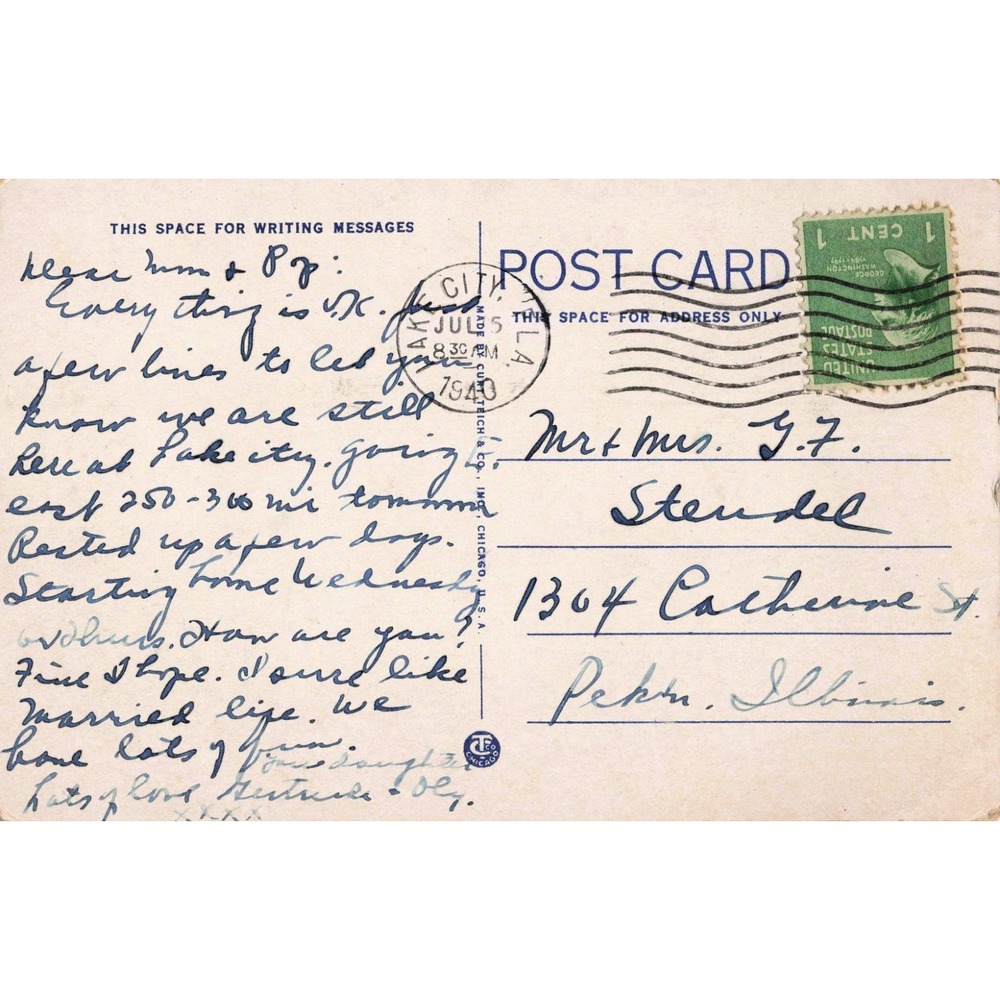 THIS SPACE FOR WRITING MESSAGES
Dear Mom & Pop:
Everything is O.K. Just
a few lines to let you
know we are still
here at Lake City. Going
east 250-300 mi tomorrow
Rested up a few days.
Starting home Wednesday
or Thurs. How are you?
Fine I hope. I sure like
married life. We
have lots of fun.
Your daughter
Lots of love Gertrude & Oly.
XXXX
MADE BY CURT TEICH & CO., INC., CHICAGO, U.S.A.
CT CO
CHICAGO
POST CARD
THIS SPACE FOR ADDRESS ONLY
LAKE CITY, FLA.
JUL 5
8 30 AM
1940
UNITED
STATES
POSTAGE
GEORGE
WASHINGTON
1789-1797
1 CENT 1
Mr & Mrs. G.F.
Stendel
1304 Catherine St.
Pekin, Illinois.